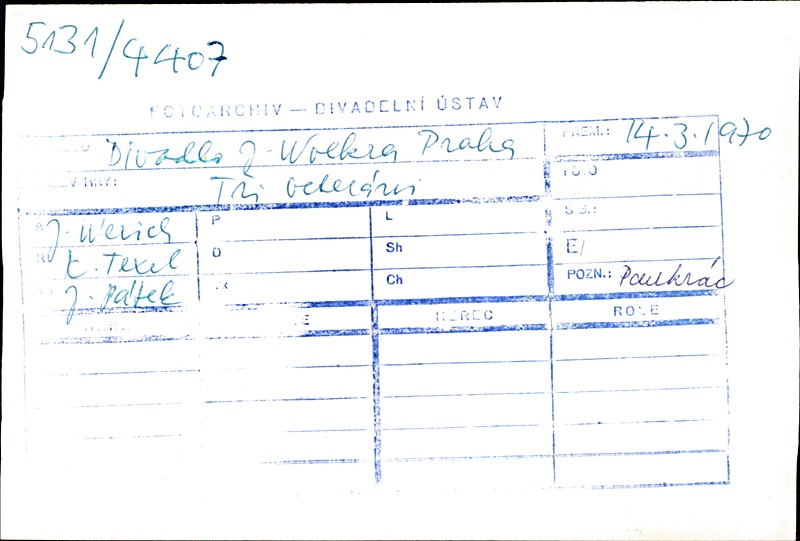 5131/4407
FOTOARCHIV — DIVADELNÍ ÚSTAV
Divadlo J. Wolkra Praha PREM.: 14.3.1970
Tři veteráni
J. Werich P L S
K. Texel O Sh E/
J. Pátek Ch POZN.: Pankrác
HEREC ROLE